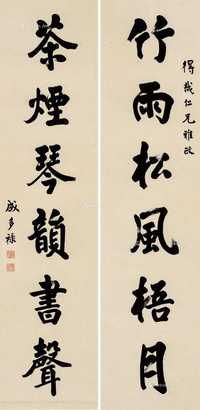 得箴仁兄雅政
竹雨松風梧月
茶煙琴韻書聲
成多祿